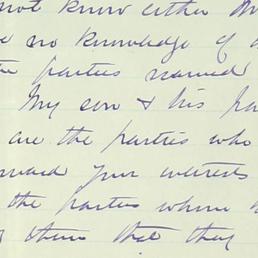 not know either
no knowledge of
the parties named
My son & his
are the parties who
your interests
the parties whom
them that they